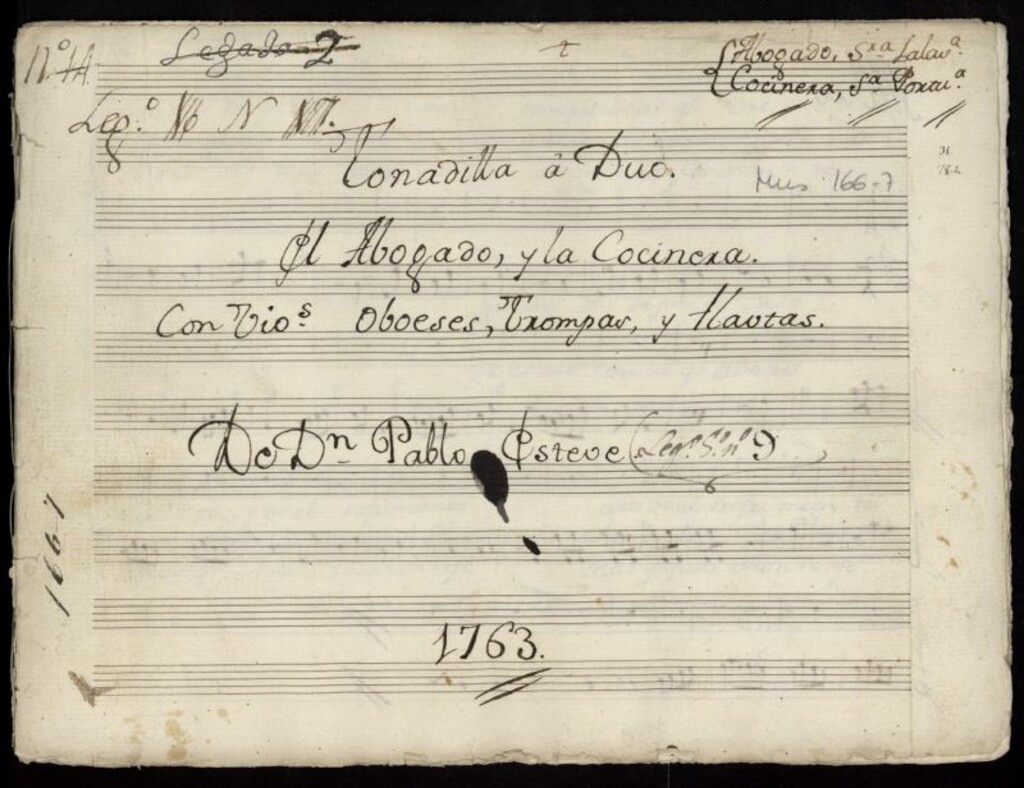 Nº 14
Legado 2
t
Abogado, Sra Lalava.
Cocinera, Sa Portua.
Leg.º
Tonadilla â Duo.
Mus 166-7
El Abogado, y la Cocinera.
Con Vios. Oboeses, Trompas, y flautas.
De Dn Pablo Esteve
1763.
166-7